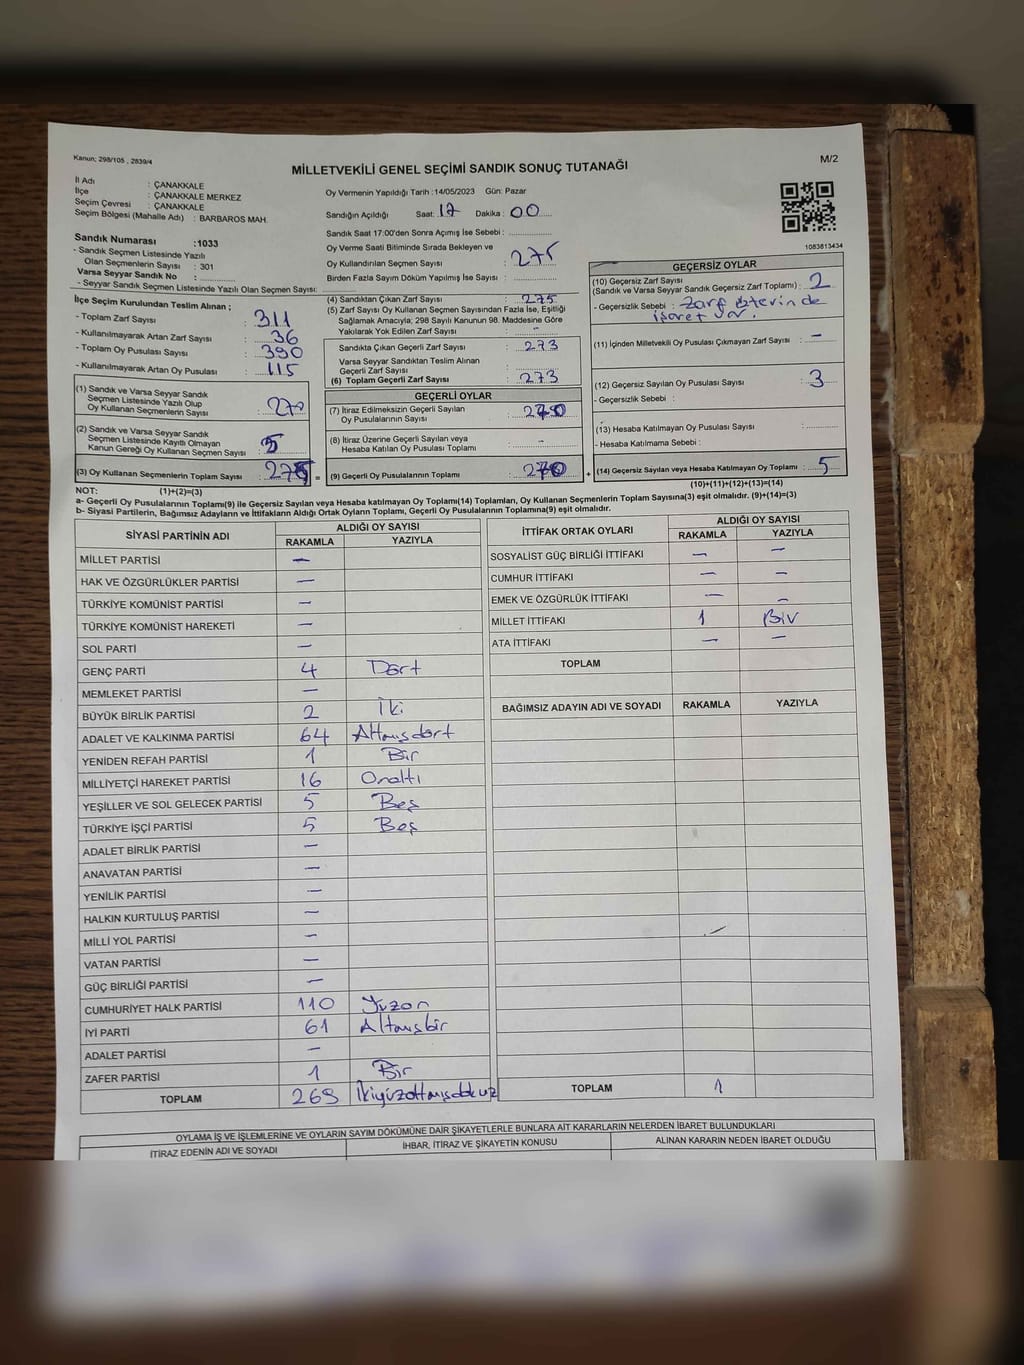 Kanun; 298/105 , 2839/4
MİLLETVEKİLİ GENEL SEÇİMİ SANDIK SONUÇ TUTANAĞI
M/2
İl Adı : ÇANAKKALE
İlçe : ÇANAKKALE MERKEZ
Seçim Çevresi : ÇANAKKALE
Seçim Bölgesi (Mahalle Adı) : BARBAROS MAH.
Oy Vermenin Yapıldığı Tarih :14/05/2023 Gün: Pazar
Sandığın Açıldığı Saat: 17 Dakika : 00
Sandık Saat 17:00'den Sonra Açımış İse Sebebi :
Oy Verme Saati Bitiminde Sırada Bekleyen ve
Oy Kullandırılan Seçmen Sayısı : 275
Birden Fazla Sayım Döküm Yapılmış İse Sayısı :
1083813434
Sandık Numarası :1033
- Sandık Seçmen Listesinde Yazılı
Olan Seçmenlerin Sayısı : 301
Varsa Seyyar Sandık No :
- Seyyar Sandık Seçmen Listesinde Yazılı Olan Seçmen Sayısı:
İlçe Seçim Kurulundan Teslim Alınan ;
- Toplam Zarf Sayısı : 311
- Kullanılmayarak Artan Zarf Sayısı : 36
- Toplam Oy Pusulası Sayısı : 390
- Kullanılmayarak Artan Oy Pusulası : 115
(1) Sandık ve Varsa Seyyar Sandık
Seçmen Listesinde Yazılı Olup
Oy Kullanan Seçmenlerin Sayısı : 270
(2) Sandık ve Varsa Seyyar Sandık
Seçmen Listesinde Kayıtlı Olmayan
Kanun Gereği Oy Kullanan Seçmen Sayısı : 5
(3) Oy Kullanan Seçmenlerin Toplam Sayısı : 275 =
(4) Sandıktan Çıkan Zarf Sayısı : 275
(5) Zarf Sayısı Oy Kullanan Seçmen Sayısından Fazla İse, Eşitliği
Sağlamak Amacıyla; 298 Sayılı Kanunun 98. Maddesine Göre
Yakılarak Yok Edilen Zarf Sayısı : -
Sandıkta Çıkan Geçerli Zarf Sayısı : 273
Varsa Seyyar Sandıktan Teslim Alınan
Geçerli Zarf Sayısı :
(6) Toplam Geçerli Zarf Sayısı : 273
GEÇERLİ OYLAR
(7) İtiraz Edilmeksizin Geçerli Sayılan
Oy Pusulalarının Sayısı : 270
(8) İtiraz Üzerine Geçerli Sayılan veya
Hesaba Katılan Oy Pusulası Toplamı : -
(9) Geçerli Oy Pusulalarının Toplamı : 270 +
GEÇERSİZ OYLAR
(10) Geçersiz Zarf Sayısı
(Sandık ve Varsa Seyyar Sandık Geçersiz Zarf Toplamı) : 2
- Geçersizlik Sebebi : Zarf üzerinde
işaret var.
(11) İçinden Milletvekili Oy Pusulası Çıkmayan Zarf Sayısı : -
(12) Geçersiz Sayılan Oy Pusulası Sayısı : 3
- Geçersizlik Sebebi :
(13) Hesaba Katılmayan Oy Pusulası Sayısı :
- Hesaba Katılmama Sebebi :
(14) Geçersiz Sayılan veya Hesaba Katılmayan Oy Toplamı : 5
NOT: (1)+(2)=(3)
(10)+(11)+(12)+(13)=(14)
a- Geçerli Oy Pusulalarının Toplamı(9) ile Geçersiz Sayılan veya Hesaba katılmayan Oy Toplamı(14) Toplamları, Oy Kullanan Seçmenlerin Toplam Sayısına(3) eşit olmalıdır. (9)+(14)=(3)
b- Siyasi Partilerin, Bağımsız Adayların ve İttifakların Aldığı Ortak Oyların Toplamı, Geçerli Oy Pusulalarının Toplamına(9) eşit olmalıdır.
SİYASİ PARTİNİN ADI ALDIĞI OY SAYISI
RAKAMLA YAZIYLA
MİLLET PARTİSİ -
HAK VE ÖZGÜRLÜKLER PARTİSİ -
TÜRKİYE KOMÜNİST PARTİSİ -
TÜRKİYE KOMÜNİST HAREKETİ -
SOL PARTİ -
GENÇ PARTİ 4 Dört
MEMLEKET PARTİSİ -
BÜYÜK BİRLİK PARTİSİ 2 İki
ADALET VE KALKINMA PARTİSİ 64 Altmışdört
YENİDEN REFAH PARTİSİ 1 Bir
MİLLİYETÇİ HAREKET PARTİSİ 16 Onaltı
YEŞİLLER VE SOL GELECEK PARTİSİ 5 Beş
TÜRKİYE İŞÇİ PARTİSİ 5 Beş
ADALET BİRLİK PARTİSİ -
ANAVATAN PARTİSİ -
YENİLİK PARTİSİ -
HALKIN KURTULUŞ PARTİSİ -
MİLLİ YOL PARTİSİ -
VATAN PARTİSİ -
GÜÇ BİRLİĞİ PARTİSİ -
CUMHURİYET HALK PARTİSİ 110 Yüzon
İYİ PARTİ 61 Altmışbir
ADALET PARTİSİ -
ZAFER PARTİSİ 1 Bir
TOPLAM 269 İkiyüzaltmışdokuz
İTTİFAK ORTAK OYLARI ALDIĞI OY SAYISI
RAKAMLA YAZIYLA
SOSYALİST GÜÇ BİRLİĞİ İTTİFAKI - -
CUMHUR İTTİFAKI - -
EMEK VE ÖZGÜRLÜK İTTİFAKI - -
MİLLET İTTİFAKI 1 Bir
ATA İTTİFAKI - -
TOPLAM
BAĞIMSIZ ADAYIN ADI VE SOYADI RAKAMLA YAZIYLA
TOPLAM 1
OYLAMA İŞ VE İŞLEMLERİNE VE OYLARIN SAYIM DÖKÜMÜNE DAİR ŞİKAYETLERLE BUNLARA AİT KARARLARIN NELERDEN İBARET BULUNDUKLARI
İTİRAZ EDENİN ADI VE SOYADI İHBAR, İTİRAZ VE ŞİKAYETİN KONUSU ALINAN KARARIN NEDEN İBARET OLDUĞU